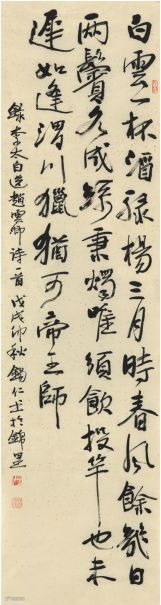 白雲一杯酒綠楊三月時春風餘幾日
兩鬢各成絲秉燭唯須飲投竿也未
遲如逢渭川獵猶可帝王師
錄李太白送趙雲卿诗一首戊戌仲秋錫仁书於錦里